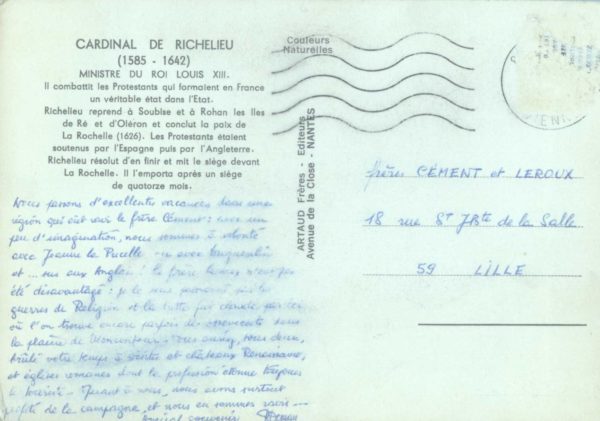 CARDINAL DE RICHELIEU
(1585 - 1642)
MINISTRE DU ROI LOUIS XIII.
Il combattit les Protestants qui formaient en France
un véritable état dans l'Etat.
Richelieu reprend à Soubise et à Rohan les Iles
de Ré et d'Oléron et conclut la paix de
La Rochelle (1626). Les Protestants étaient
soutenus par l'Espagne puis par l'Angleterre.
Richelieu résolut d'en finir et mit le siège devant
La Rochelle. Il l'emporta après un siège
de quatorze mois.
Nous passons d'excellentes vacances dans une
région qui eût ravi le frère Cément : avec un
peu d'imagination, nous sommes à volonté
avec Jeanne la Pucelle avec
et ... sus aux Anglais ! Le frère Leroux n'est pas
été désavantagé : je le
guerres de Religion et la lutte fut chaude par ici
où l'on trouve encore parfois des dans
la plaine de Moncontour. Vous auriez, tous deux,
votre temps à visiter châteaux Renaissance,
et églises romanes dont la profusion étonne toujours
le touriste. Quant à nous, nous avons surtout
profité de la campagne, et nous en sommes ravis
Amical souvenir
Couleurs
Naturelles
ARTAUD Frères - Editeurs
Avenue de la Close - NANTES
frères CÉMENT et LEROUX
18 rue St JBte de la Salle
59 LILLE